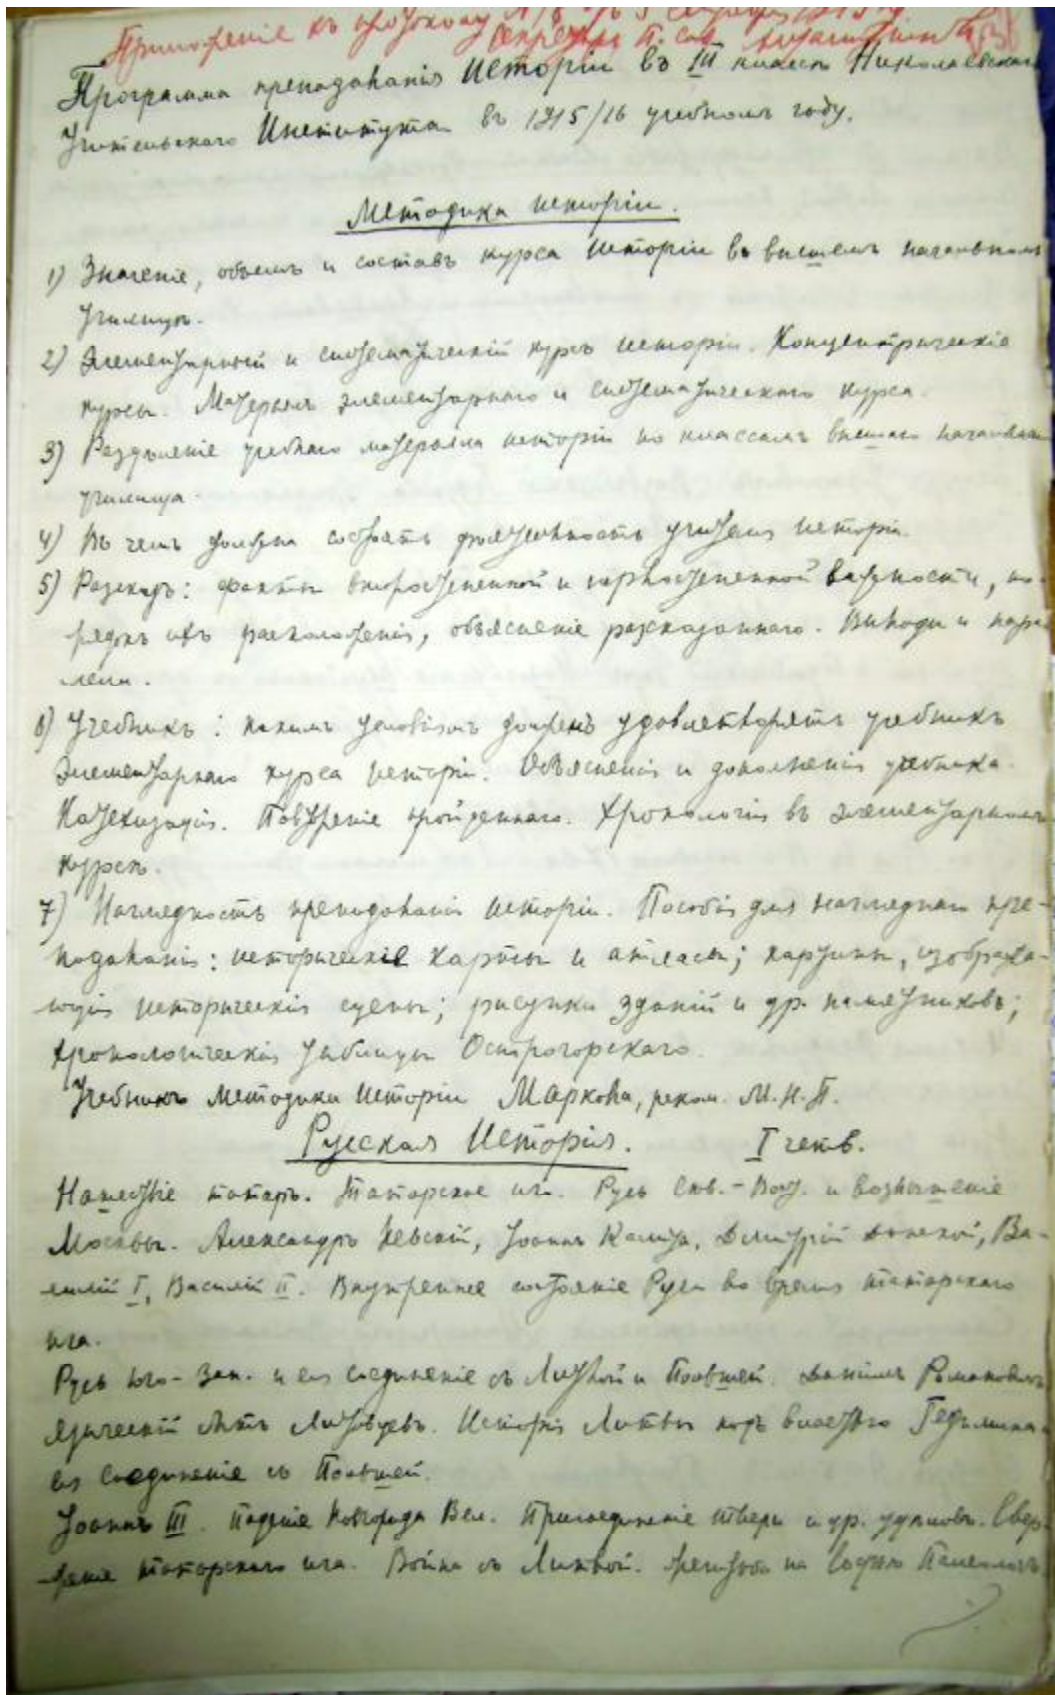 Приложеніе къ протоколу №
Секретарь П. сов.
Программа преподаванія Исторіи въ III классѣ Николаевскаго
Учительскаго Института въ 1915/16 учебномъ году.
Методика исторіи.
1) Значеніе, объемъ и составъ курса исторіи въ высшемъ начальномъ
училищѣ.
2) Элементарный и систематическій курсъ исторіи. Концентрическіе
курсы. Матерьялъ элементарнаго и систематическаго курса.
3) Раздѣленіе учебнаго матерьяла исторіи по классамъ высшаго начальнаго
училища.
4) Въ чемъ должна состоять дѣятельность учителя исторіи.
5) Разсказъ: факты второстепенной и первостепенной важности, по-
рядокъ ихъ расположенія, объясненіе разсказаннаго. Выводы и парал-
лели.
6) Учебникъ: какимъ условіямъ долженъ удовлетворять учебникъ
элементарнаго курса исторіи. Объясненія и дополненія учебника.
Катехизація. Повтореніе пройденнаго. Хронологія въ элементарномъ
курсѣ.
7) Наглядность преподаванія исторіи. Пособія для нагляднаго пре-
подаванія: историческіе карты и атласы; картины, изобража-
ющія историческія сцены; рисунки зданій и др. памятниковъ;
хронологическія таблицы Острогорскаго.
Учебникъ методики исторіи Маркова, реком. М.Н.П.
Русская Исторія. I четв.
Нашествіе татаръ. Татарское иго. Русь Сѣв.-Вост. и возвышеніе
Москвы. Александръ Невскій, Іоаннъ Калита, Дмитрій Донской, Ва-
силій I, Василій II. Внутреннее состояніе Руси во время татарскаго
ига.
Русь Юго-Зап. и ея соединеніе съ Литвой и Польшей. Даніилъ Романовичъ
языческій бытъ Литовцевъ. Исторія Литвы подъ властью Гедимина
ея соединеніе съ Польшей.
Іоаннъ III. Паденіе Новгорода Вел. Присоединеніе Твери и др. удѣловъ. Свер-
женіе татарскаго ига. Война съ Литвой. Женитьба на Софіи Палеологъ